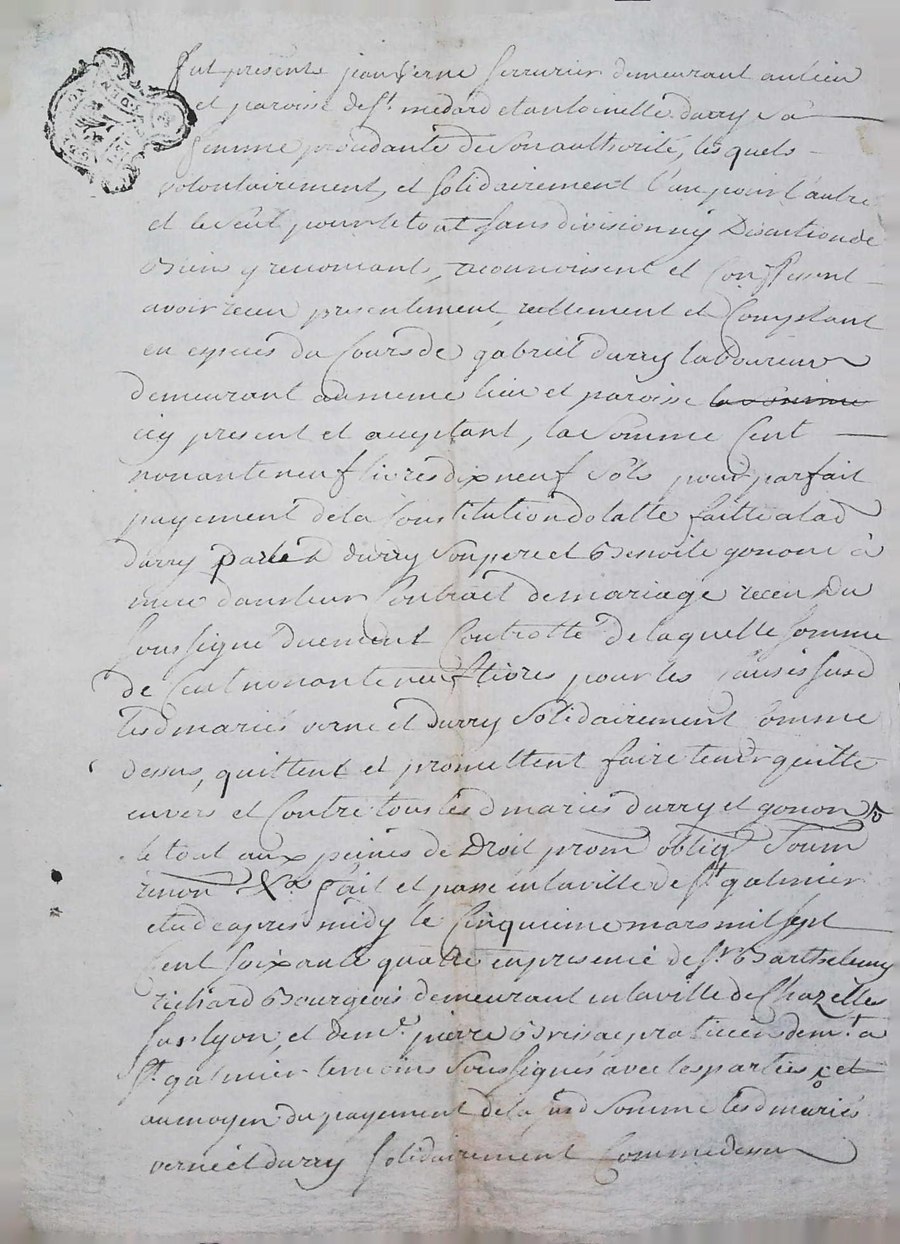 fut présents jean verne serrurier demeurant au lieu
et paroisse de St medard et antoinette durry sa
femme procedante de son authorité, lesquels
volontairement, et solidairement l'un pour l'autre
et le seul pour le tout sans division ny discution de
Biens y renoncants, reconnoissent et Confessent
avoir receu presentement, reellement et Comptant
en especes du Cours de gabriel durry laboureur
demeurant au meme lieu et paroisse
icy present et acceptant, la somme Cent
nonante neuf livres dix neuf sols pour parfait
payement de la Constitution dotalle faitte a lad
durry par led durry son pere et Benoite gonon sa
mere dans leur Contrait de mariage receu Du
soussigné duement Controllé de laquelle somme
de Cent nonante neuf livres pour les causes susd
lesd mariés verne et durry solidairement Comme
dessus, quittent et promettent faire tenir quitte
envers et Contre tous lesd mariés durry et gonon
le tout aux peines de Droit prom oblig Soum
renon &a fait et passé en la ville de St galmier
etude apres midy le Cinquieme mars mil sept
Cent soixante quatre en presence de Sr Barthelemy
richard Bourgeois demeurant en la ville de Chazelles
sur lyon, et de me pierre praticien demt a
St galmier temoins soussignés avec les parties et
au moyen du payement de la susd somme lesd mariés
verne et durry solidairement Comme dessus